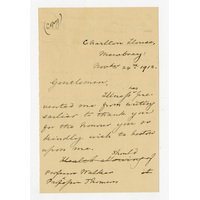 (Copy)
Charlton House,
Novbr 29th 1912.
Gentlemen,
Illness has pre-
vented me from writing
earlier to thank you
for the honour you so
kindly wish to bestow
upon me. Should
Professor Walker or
Professor Thomson